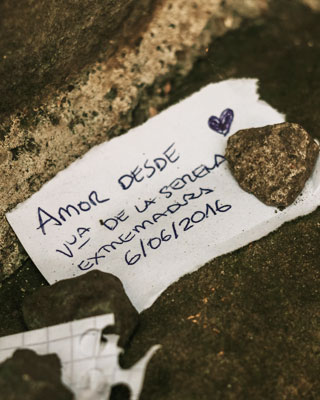 AMOR DESDE
VUA DE LA SERENA
EXTREMADURA
6/06/2016